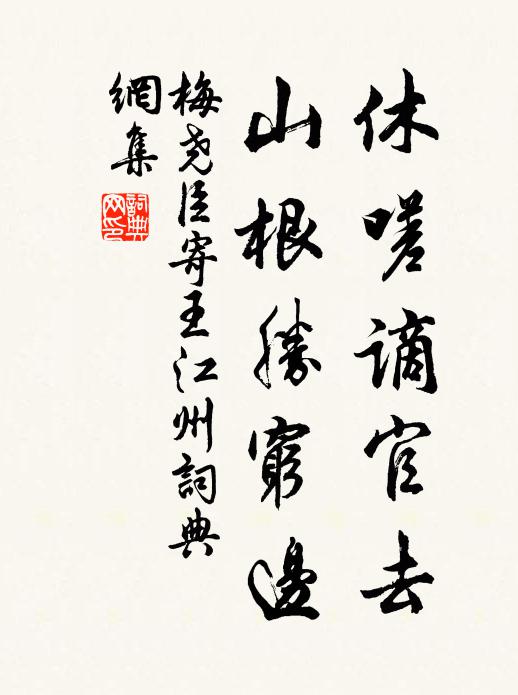 休嗟謫官去
山根勝窮邊
梅堯臣寄王江州詞典
網集
詞典
网印